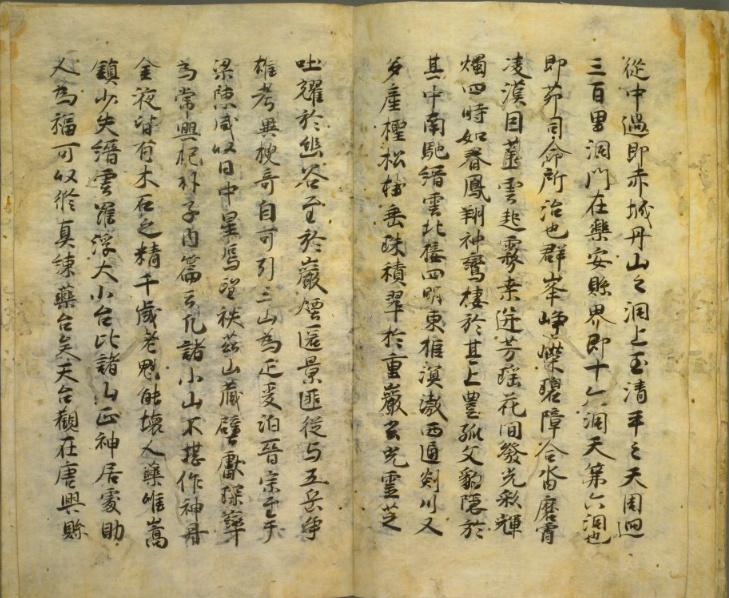 從中過即赤城丹山之洞上玉清平之天周迴
三百里洞門在樂安縣界即十六洞天第六洞也
即茅司命所治也群峯崢嶸碧障合沓磨霄
凌漢目蓋雲起霧乘迸芳瑤花間發光彩輝
燭四時如春鳳翔神鸞棲於其上豊狐父豹隱於
其中南馳縉雲北接四明東椎溟渤西通剡川又
多產檉松桂垂珠積翠於重巖玄光靈芝
吐耀於幽谷至於巖煙匿景匪從与五岳爭
雄考異搜奇自可引三山為疋爰泊晉宗至于
梁陳咸以日中星鳥望秩茲山藏璧獻琛
為常興杞朴子內篇云凡諸小山不堪作神丹
金液皆有木石之精千歲老魅能壞人藥唯嵩
鎮少失縉雲羅浮大小台比諸山正神居處助
人為福可以修真練藥台矣天台觀在唐興縣